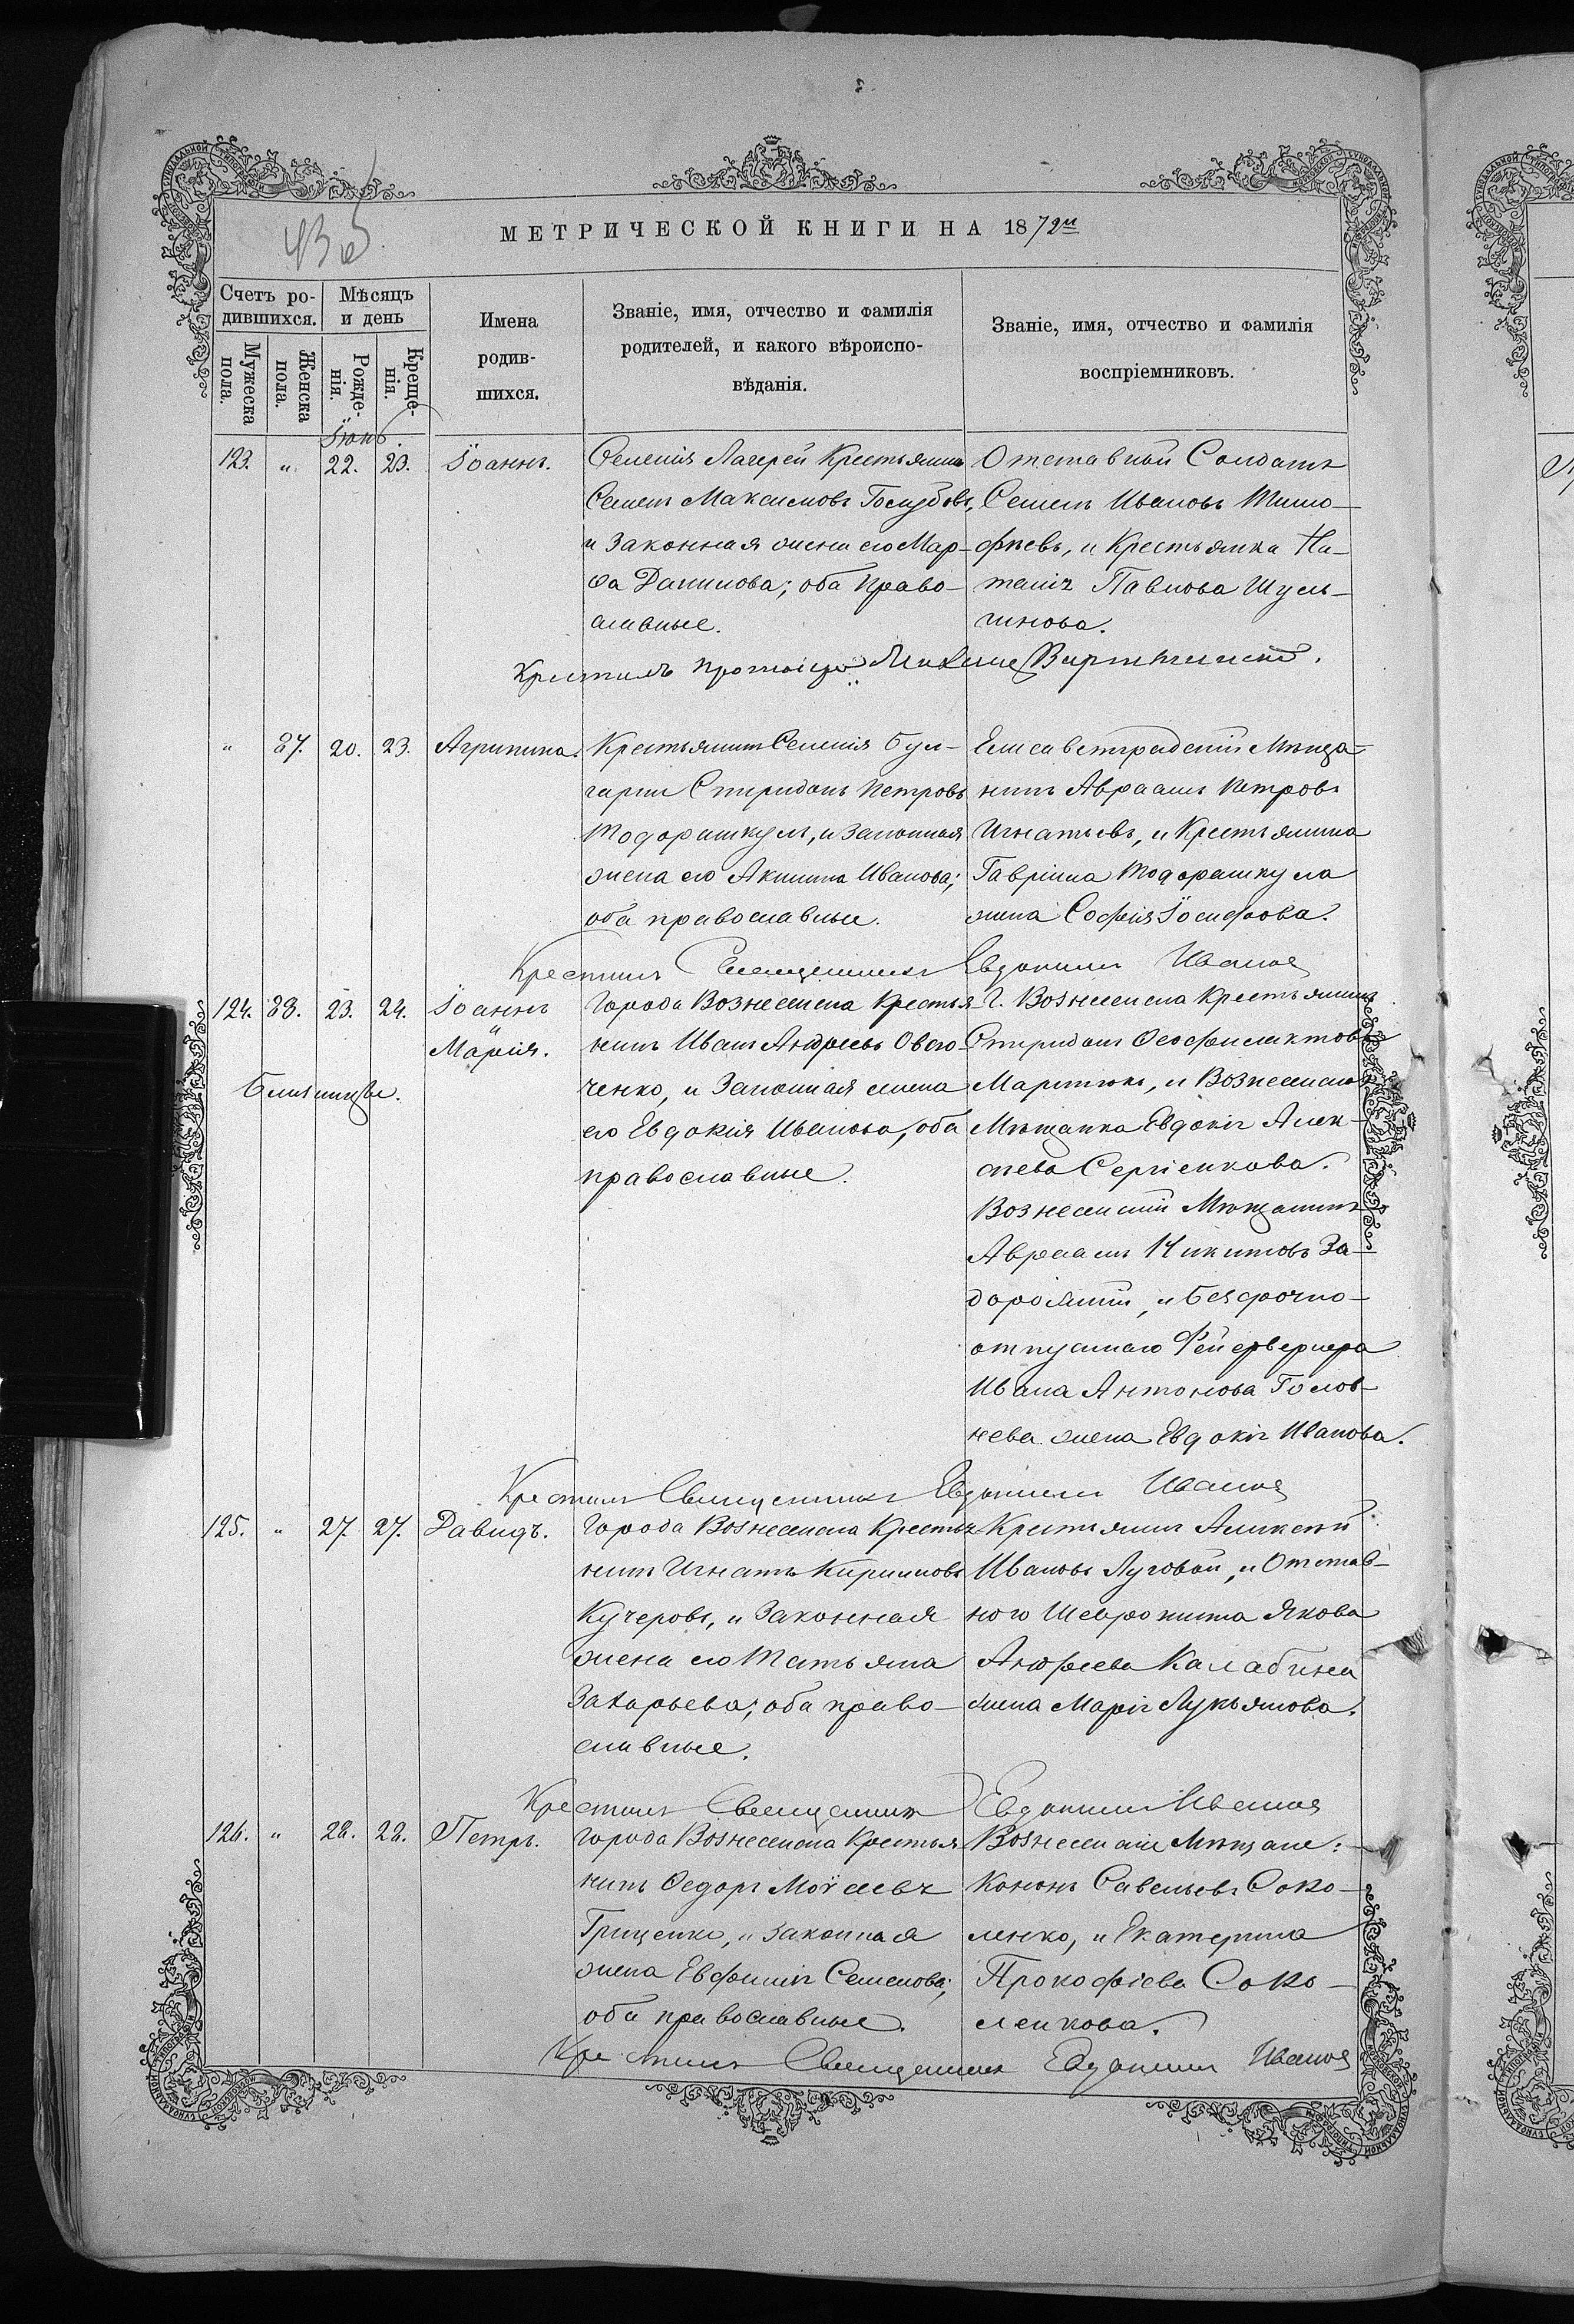 МЕТРИЧЕСКОЙ КНИГИ НА 1872й
Счетъ ро-
дившихся.
Мѣсяцъ
и день
Мужеска
пола.
Женска
пола.
Рожде-
нія.
Креще-
нія.
Имена
родив-
шихся.
Званіе, имя, отчество и фамилія
родителей, и какого вѣроиспо-
вѣданія.
Званіе, имя, отчество и фамилія
воспріемниковъ.
Іюнь.
123. " 22. 23. Іоаннъ.
Селенія Лагерей Крестьянинъ
Семенъ Максимовъ Голубовъ,
и Законная жена его Мар-
ѳа Данилова; оба Право-
славные.
Отставный Солдатъ
Семенъ Ивановъ Тимо-
фѣевъ, и Крестьянка На-
талія Павлова Шуль-
гинова.
Крестилъ
" 87. 20. 23. Агрипина.
Крестьянинъ Селенія Бул-
гарки Спиридонъ Петровъ
Тодорашкулъ, и Законная
жена его Акилина Иванова;
оба православные.
Елисаветградскій Мѣща-
нинъ Авраамъ Петровъ
Игнатьевъ, и Крестьянина
Гавріила Тодорашкула
жена Софія Іосифова.
Крестилъ Священникъ Евдокимъ
124. 88. 23. 24. Іоаннъ
и
Марія.
Близнецы.
Города Вознесенска Крестья-
нинъ Иванъ Андреевъ Овсо-
ченко, и Законная жена
его Евдокія Иванова, оба
православные.
Г. Вознесенска Крестьянинъ
Спиридонъ Ѳеофилактовъ
Мартюкъ, и Вознесенская
Мѣщанка Евдокія Алек-
сѣева Сергіенкова.
Вознесенскій Мѣщанинъ
Авраамъ Никитовъ За-
дорожній, и Безсрочно-
отпускнаго Фейерверкера
Ивана Антонова Голов-
нева жена Евдокія Иванова.
Крестилъ Священникъ Евдокимъ
125. " 27 27. Давидъ.
Города Вознесенска Крестья-
нинъ Игнатъ Кириловъ
Кучеровъ, и Законная
жена его Татьяна
Захарьева; оба право-
славные.
Крестьянинъ Алексѣй
Ивановъ Луговой, и Отстав-
ного Шевронита Якова
Андреева Калабина
жена Марія Лукьянова.
Крестилъ Священникъ Евдокимъ
126. " 28. 28. Петръ.
Города Вознесенска Крестья-
нинъ Ѳедоръ Моѵсеевъ
Грищенко, и законная
жена Евфимія Семенова;
оба православные.
Вознесенскіе Мѣщане:
Кононъ Савельевъ Соко-
ленко, и Екатерина
Прокофіева Соко-
ленкова.
Крестилъ Священникъ Евдокимъ